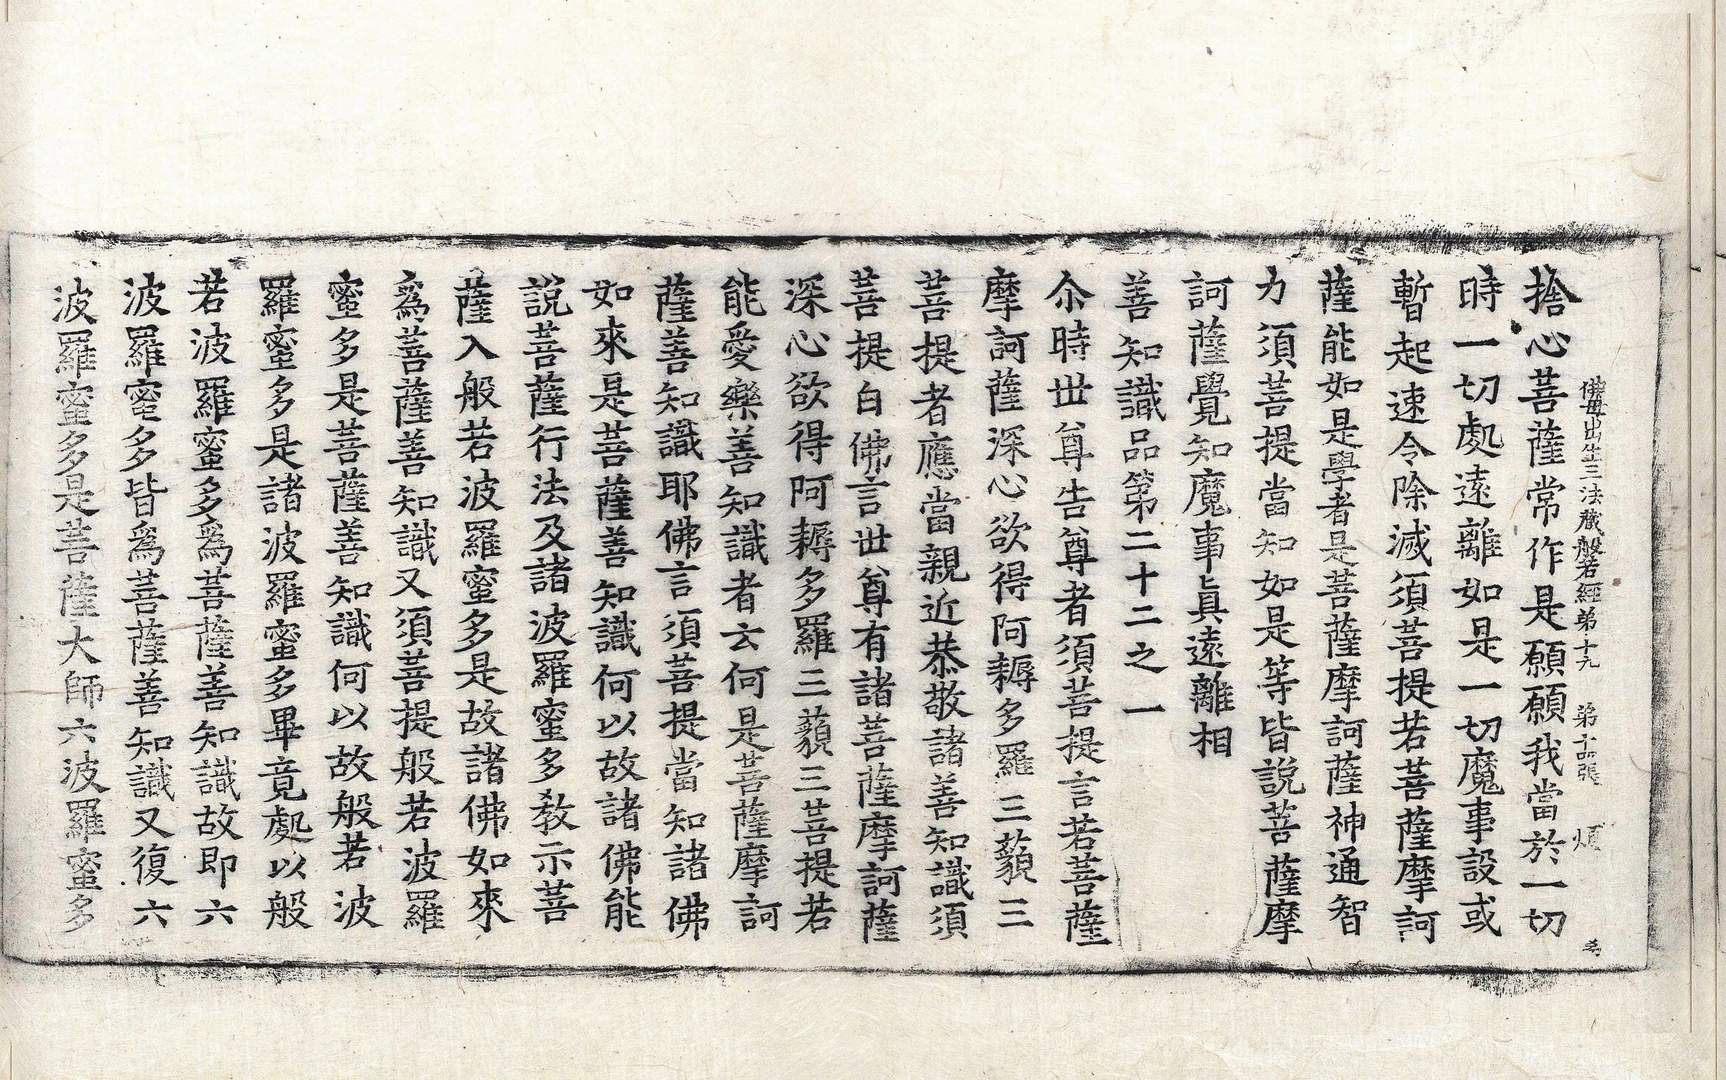 佛母出生三法藏般若經第十九 第十品張 煩
捨心菩薩常作是願願我當於一切
時一切處遠離如是一切魔事設或
暫起速令除滅須菩提若菩薩摩訶
薩能如是學者是菩薩摩訶薩神通智
力須菩提當知如是等皆說菩薩摩
訶薩覺知魔事眞遠離相
善知識品第二十二之一
尒時世尊告尊者須菩提言若菩薩
摩訶薩深心欲得阿耨多羅三藐三
菩提者應當親近恭敬諸善知識須
菩提白佛言世尊有諸菩薩摩訶薩
深心欲得阿耨多羅三藐三菩提若
能愛樂善知識者云何是菩薩摩訶
薩善知識耶佛言須菩提當知諸佛
如來是菩薩善知識何以故諸佛能
說菩薩行法及諸波羅蜜多教示菩
薩入般若波羅蜜多是故諸佛如來
爲菩薩善知識又須菩提般若波羅
蜜多是菩薩善知識何以故般若波
羅蜜多是諸波羅蜜多畢竟處以般
若波羅蜜多爲菩薩善知識故即六
波羅蜜多皆爲菩薩善知識又復六
波羅蜜多是菩薩大師六波羅蜜多